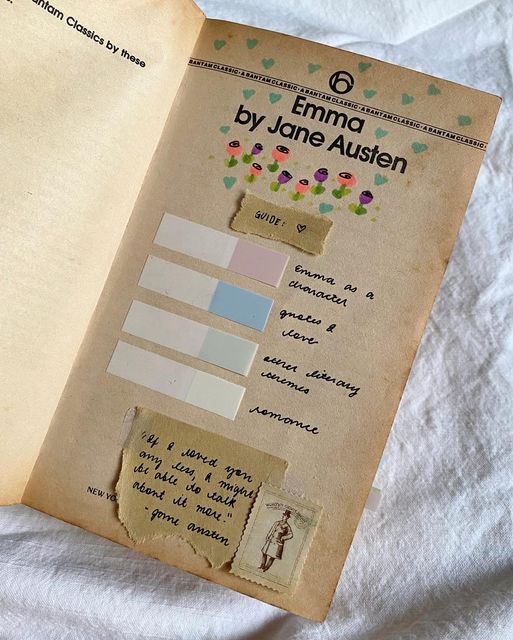 antam Classics by these
A BANTAM CLASSIC • A BANTAM CLASSIC • A BANTAM CLASSIC • A BANTAM CLASSIC • A BANTAM CLASSIC
Emma
by Jane Austen
GUIDE: ♡
Emma as a
character
quotes &
love
other literary
themes
romance
"If I loved you
any less, I might
be able to talk
about it more."
- Jane Austen
NEW YO